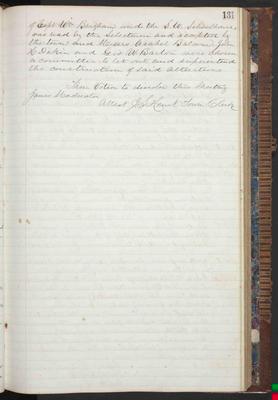 131
of Capt Wm Brigham and the S.W. Schoolhouse
was read by the Selectmen and accepted by
the town and Messrs Cashel Balcom John
E. Dakin and Geo. W. Barton were chosen
a committee to let out and superintend
the construction of said alterations
Then Voted to dissolve this Meeting
James Moderator
Attest J.S. Hunt Town Clerk